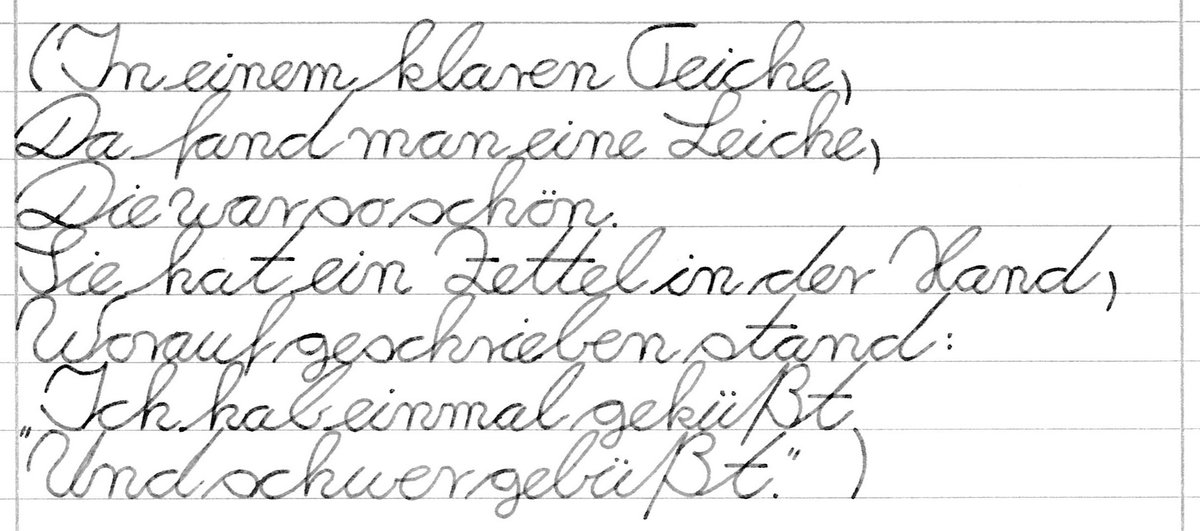 (In einem klaren Teiche,
Da fand man eine Leiche,
Die war so schön.
Sie hat ein Zettel in der Hand,
Worauf geschrieben stand:
Ich hab einmal geküßt
"Und schwer gebüßt.")